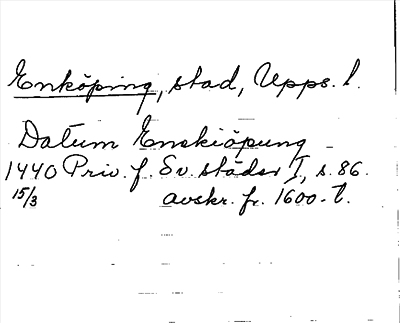 Enköping, stad, Upps. l.
Datum Enskiöpung
1440 Priv. f. Sv. städer I, s. 86.
15/3 avskr. fr. 1600-t.